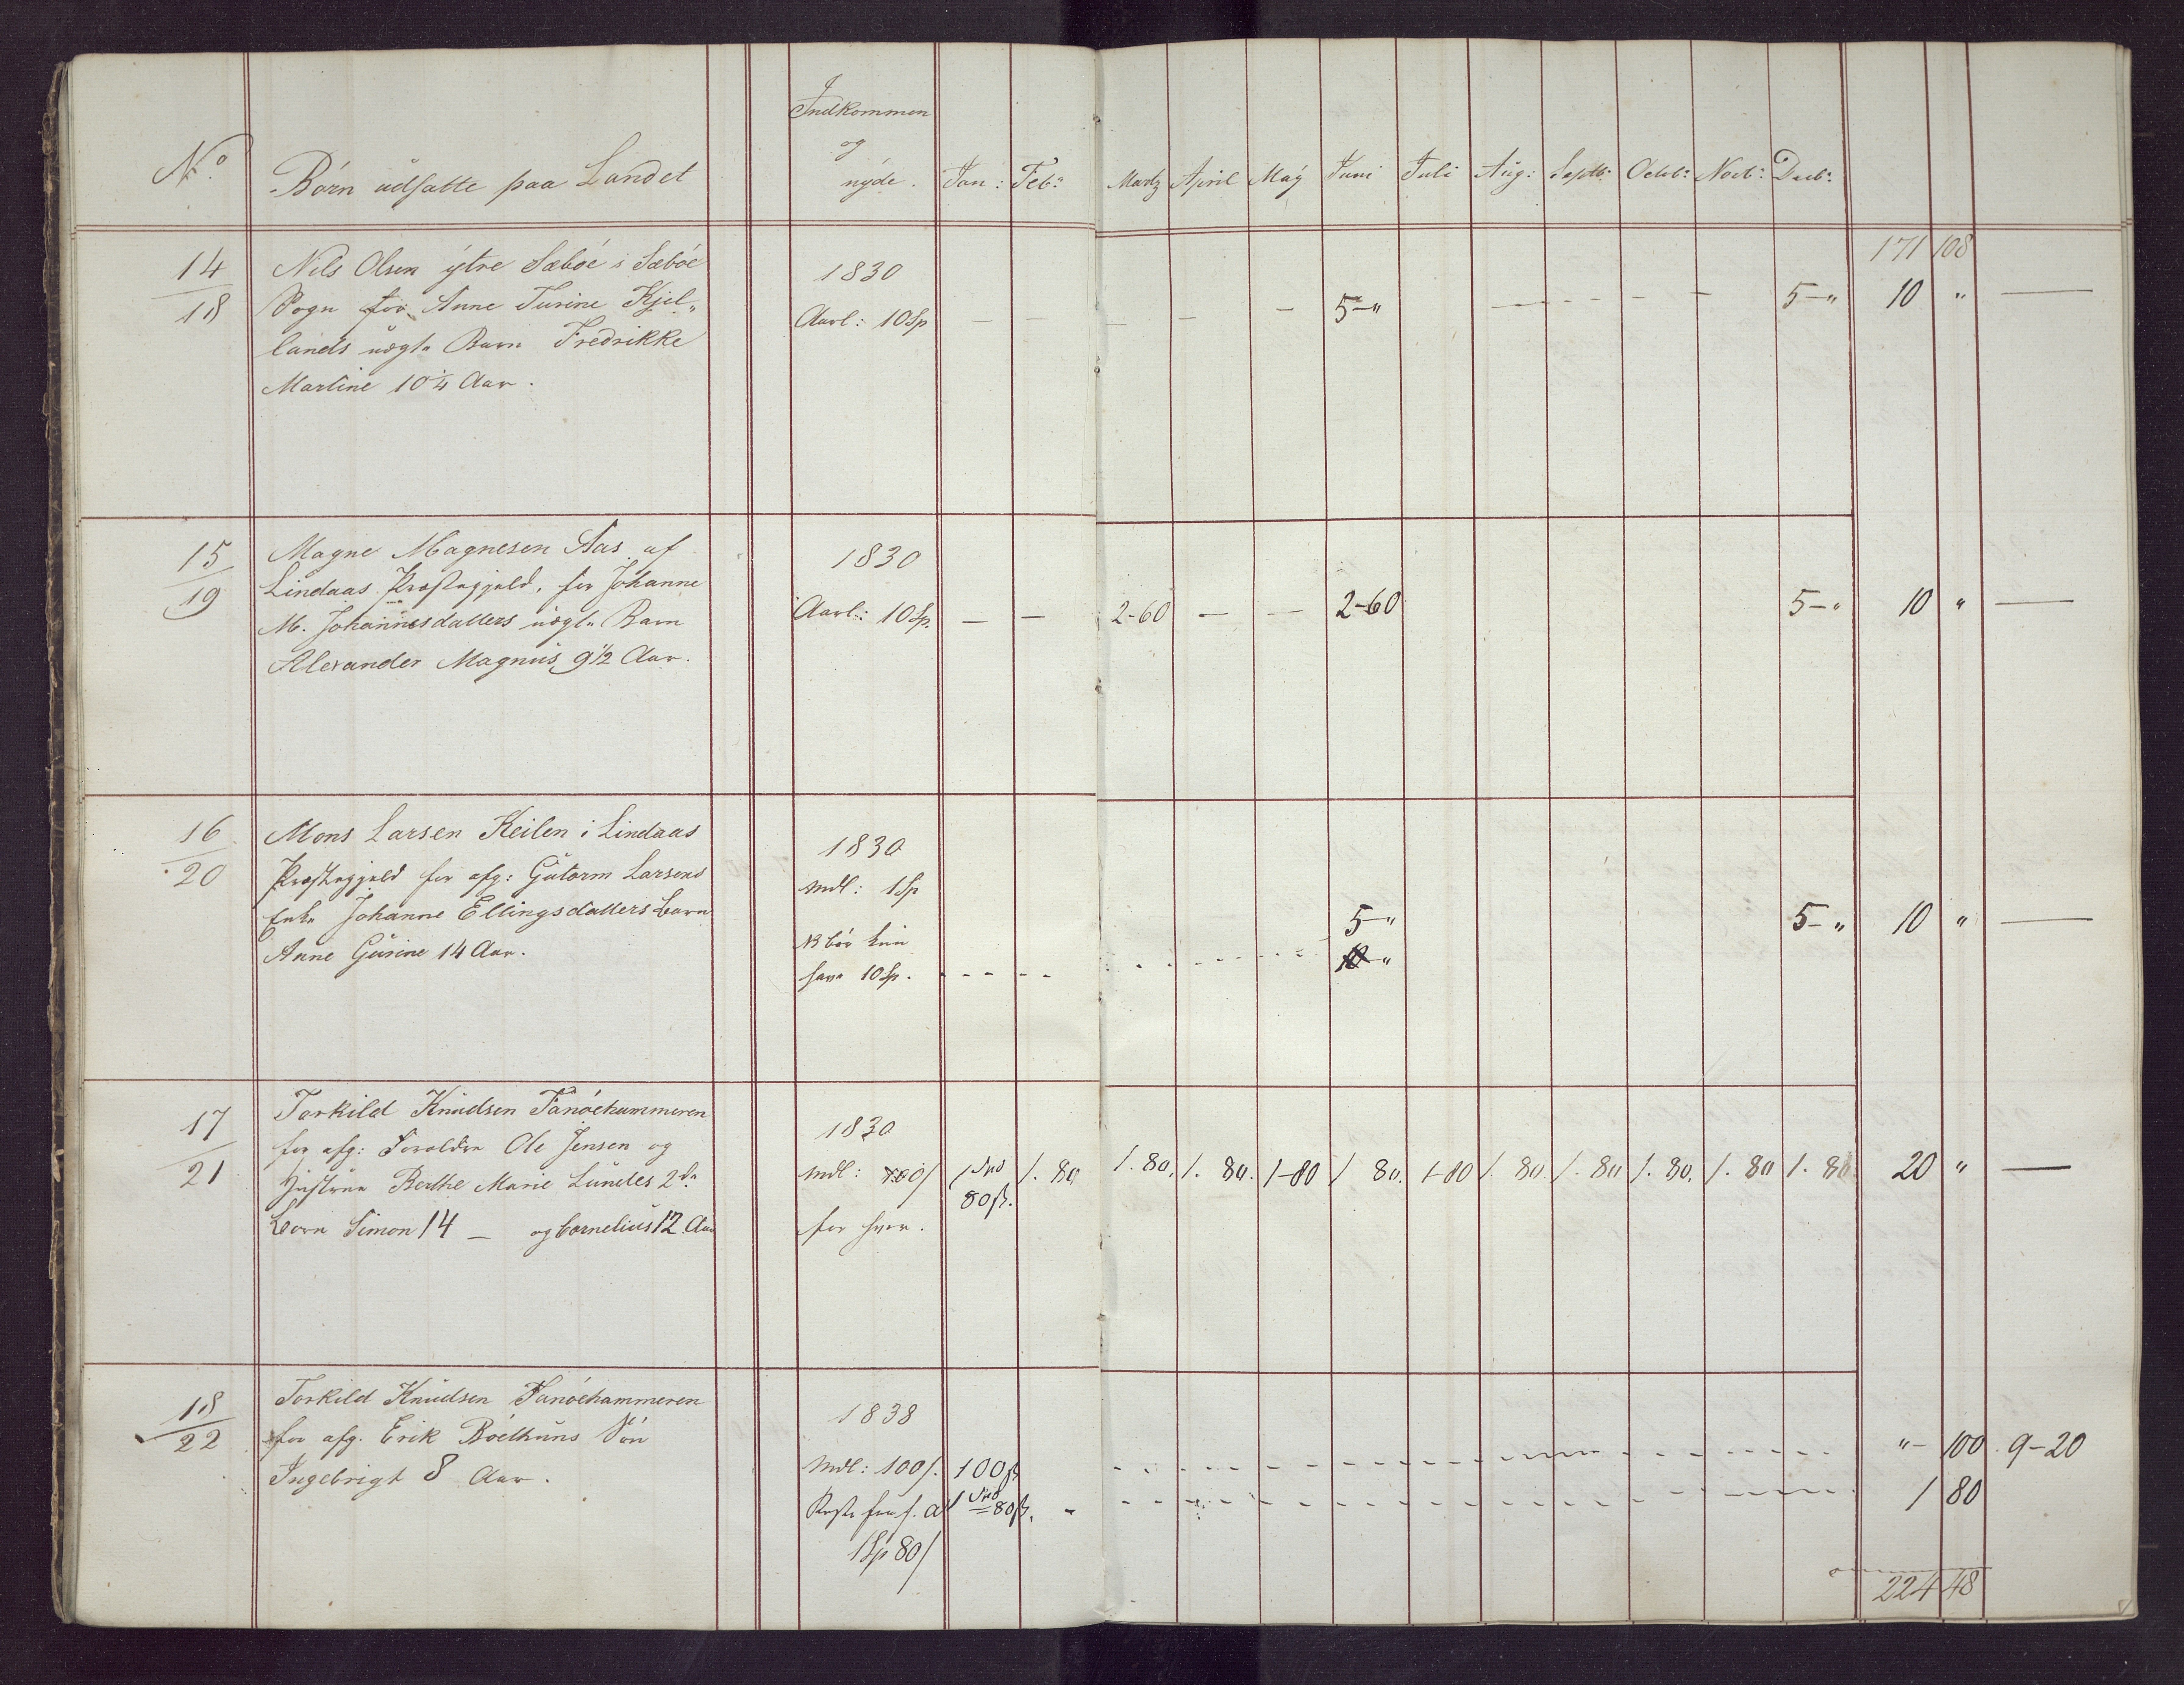 No. Börn udsatte paa Landet Indkommen og nyde. Jan: Feb: Martz April May Juni Juli Aug: Septb: Octob: Novb: Decb:
171 108
14/18 Nils Olsen ytre Sæböe i Sæböe 1830
Sogn for Anne Turine Kjel- Aarl: 10 Sp — — — — — 5-" — — — — — 5-" 10 " —
lands uægte Barn Fredrikke
Martine 10¼ Aar.
15/19 Magne Magnesen Aas af 1830
Lindaas Præstegjeld, for Johanne Aarl: 10 Sp. — — 2-60 — — 2-60 5-" 10 " —
M. Johannesdatters uægte Barn
Alexander Magnus 9½ Aar.
16/20 Mons Larsen Keilen i Lindaas 1830
Præstegjeld for afg: Gutorm Larsens mdl: 1 Sp
Enke Johanne Ellingsdatters Barn NB bör kun 5-" 5-" 10 " —
Anne Gurine 14 Aar. have 10 Sp. - - - - 10-"
17/21 Torkild Knudsen Fanöehammeren 1830
for afg: Forældre Ole Jensen og
Hustrue Berthe Marie Lundes 2de mdl: 100/ 1 Spd 80 ß. 1. 80 1. 80. 1. 80. 1-80 1 80. 1-80 1. 80. 1. 80 1. 80. 1. 80 1. 80. 20 " —
Börn Simon 14 — og Cornelius 12 Aar for hver.
18/22 Torkild Knudsen Fanöehammeren 1838
for afg. Erik Böethuns Sön
Ingebrigt 8 Aar. mdl: 100/. 100 ß "- 100. 9-20
1 Spd 80 ß. 1 80
1 Sp 80/
224 48